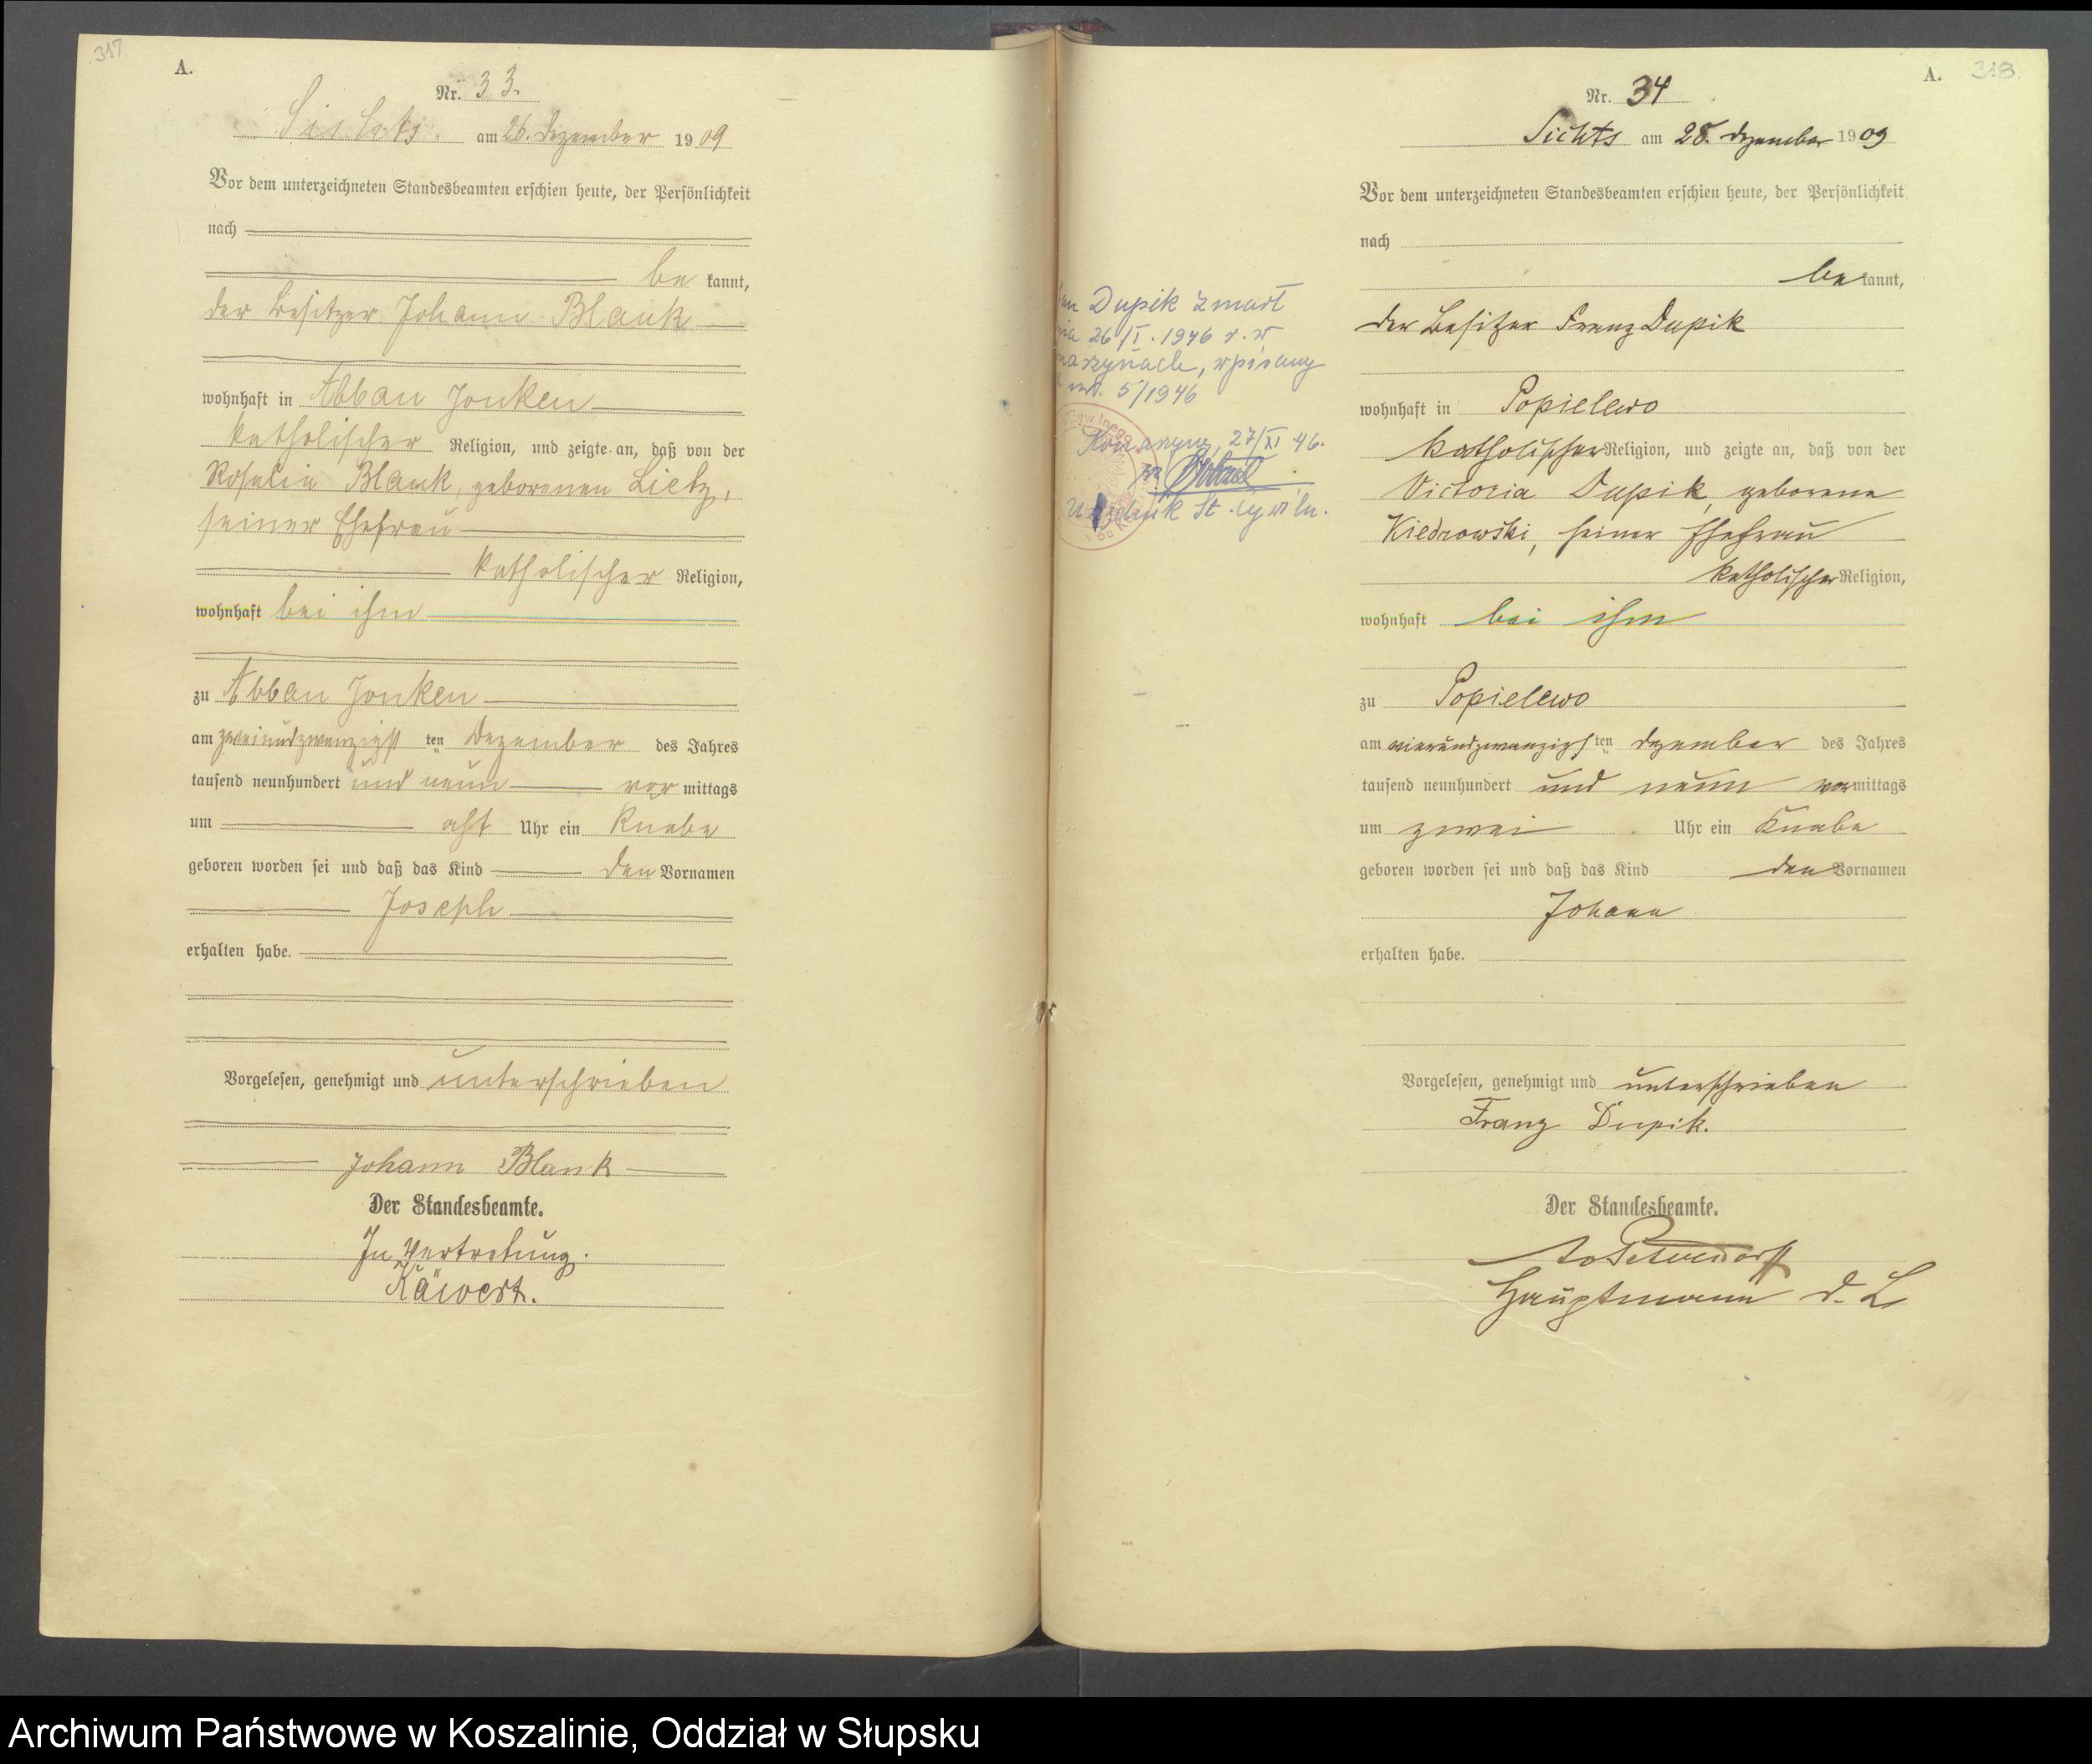 317.
A.
Nr. 33.
am 26. Dezember 1909
Vor dem unterzeichneten Standesbeamten erschien heute, der Persönlichkeit
nach
be kannt,
der Besitzer Johann Blank
wohnhaft in Abbau Jonken
katholischer Religion, und zeigte an, daß von der
Rosalia Blank, geborenen Lietz,
seiner Ehefrau
katholischer Religion,
wohnhaft bei ihm
zu Abbau Jonken
am zweiundzwanzigst ten Dezember des Jahres
tausend neunhundert und neun vor mittags
um acht Uhr ein Knabe
geboren worden sei und daß das Kind den Vornamen
Joseph
erhalten habe.
Vorgelesen, genehmigt und unterschrieben
Johann Blank
Der Standesbeamte.
In Vertretung.
A. 318.
Nr. 34
Sichts am 28. Dezember 1909
Vor dem unterzeichneten Standesbeamten erschien heute, der Persönlichkeit
nach
bekannt,
der Besitzer Franz Dupik
wohnhaft in Popielewo
katholischer Religion, und zeigte an, daß von der
Victoria Dupik, geborene
Kiedrowski, seiner Ehefrau
katholischer Religion,
wohnhaft bei ihm
zu Popielewo
am vierundzwanzigsten Dezember des Jahres
tausend neunhundert und neun vormittags
um zwei Uhr ein Knabe
geboren worden sei und daß das Kind den Vornamen
Johann
erhalten habe.
Vorgelesen, genehmigt und unterschrieben
Franz Dupik.
Der Standesbeamte.
Hauptmann d. L
Dupik zmarł
26/I. 1946 r. w
wpisany
5/1946
27/XI 46.
St. Cywiln.
Archiwum Państwowe w Koszalinie, Oddział w Słupsku